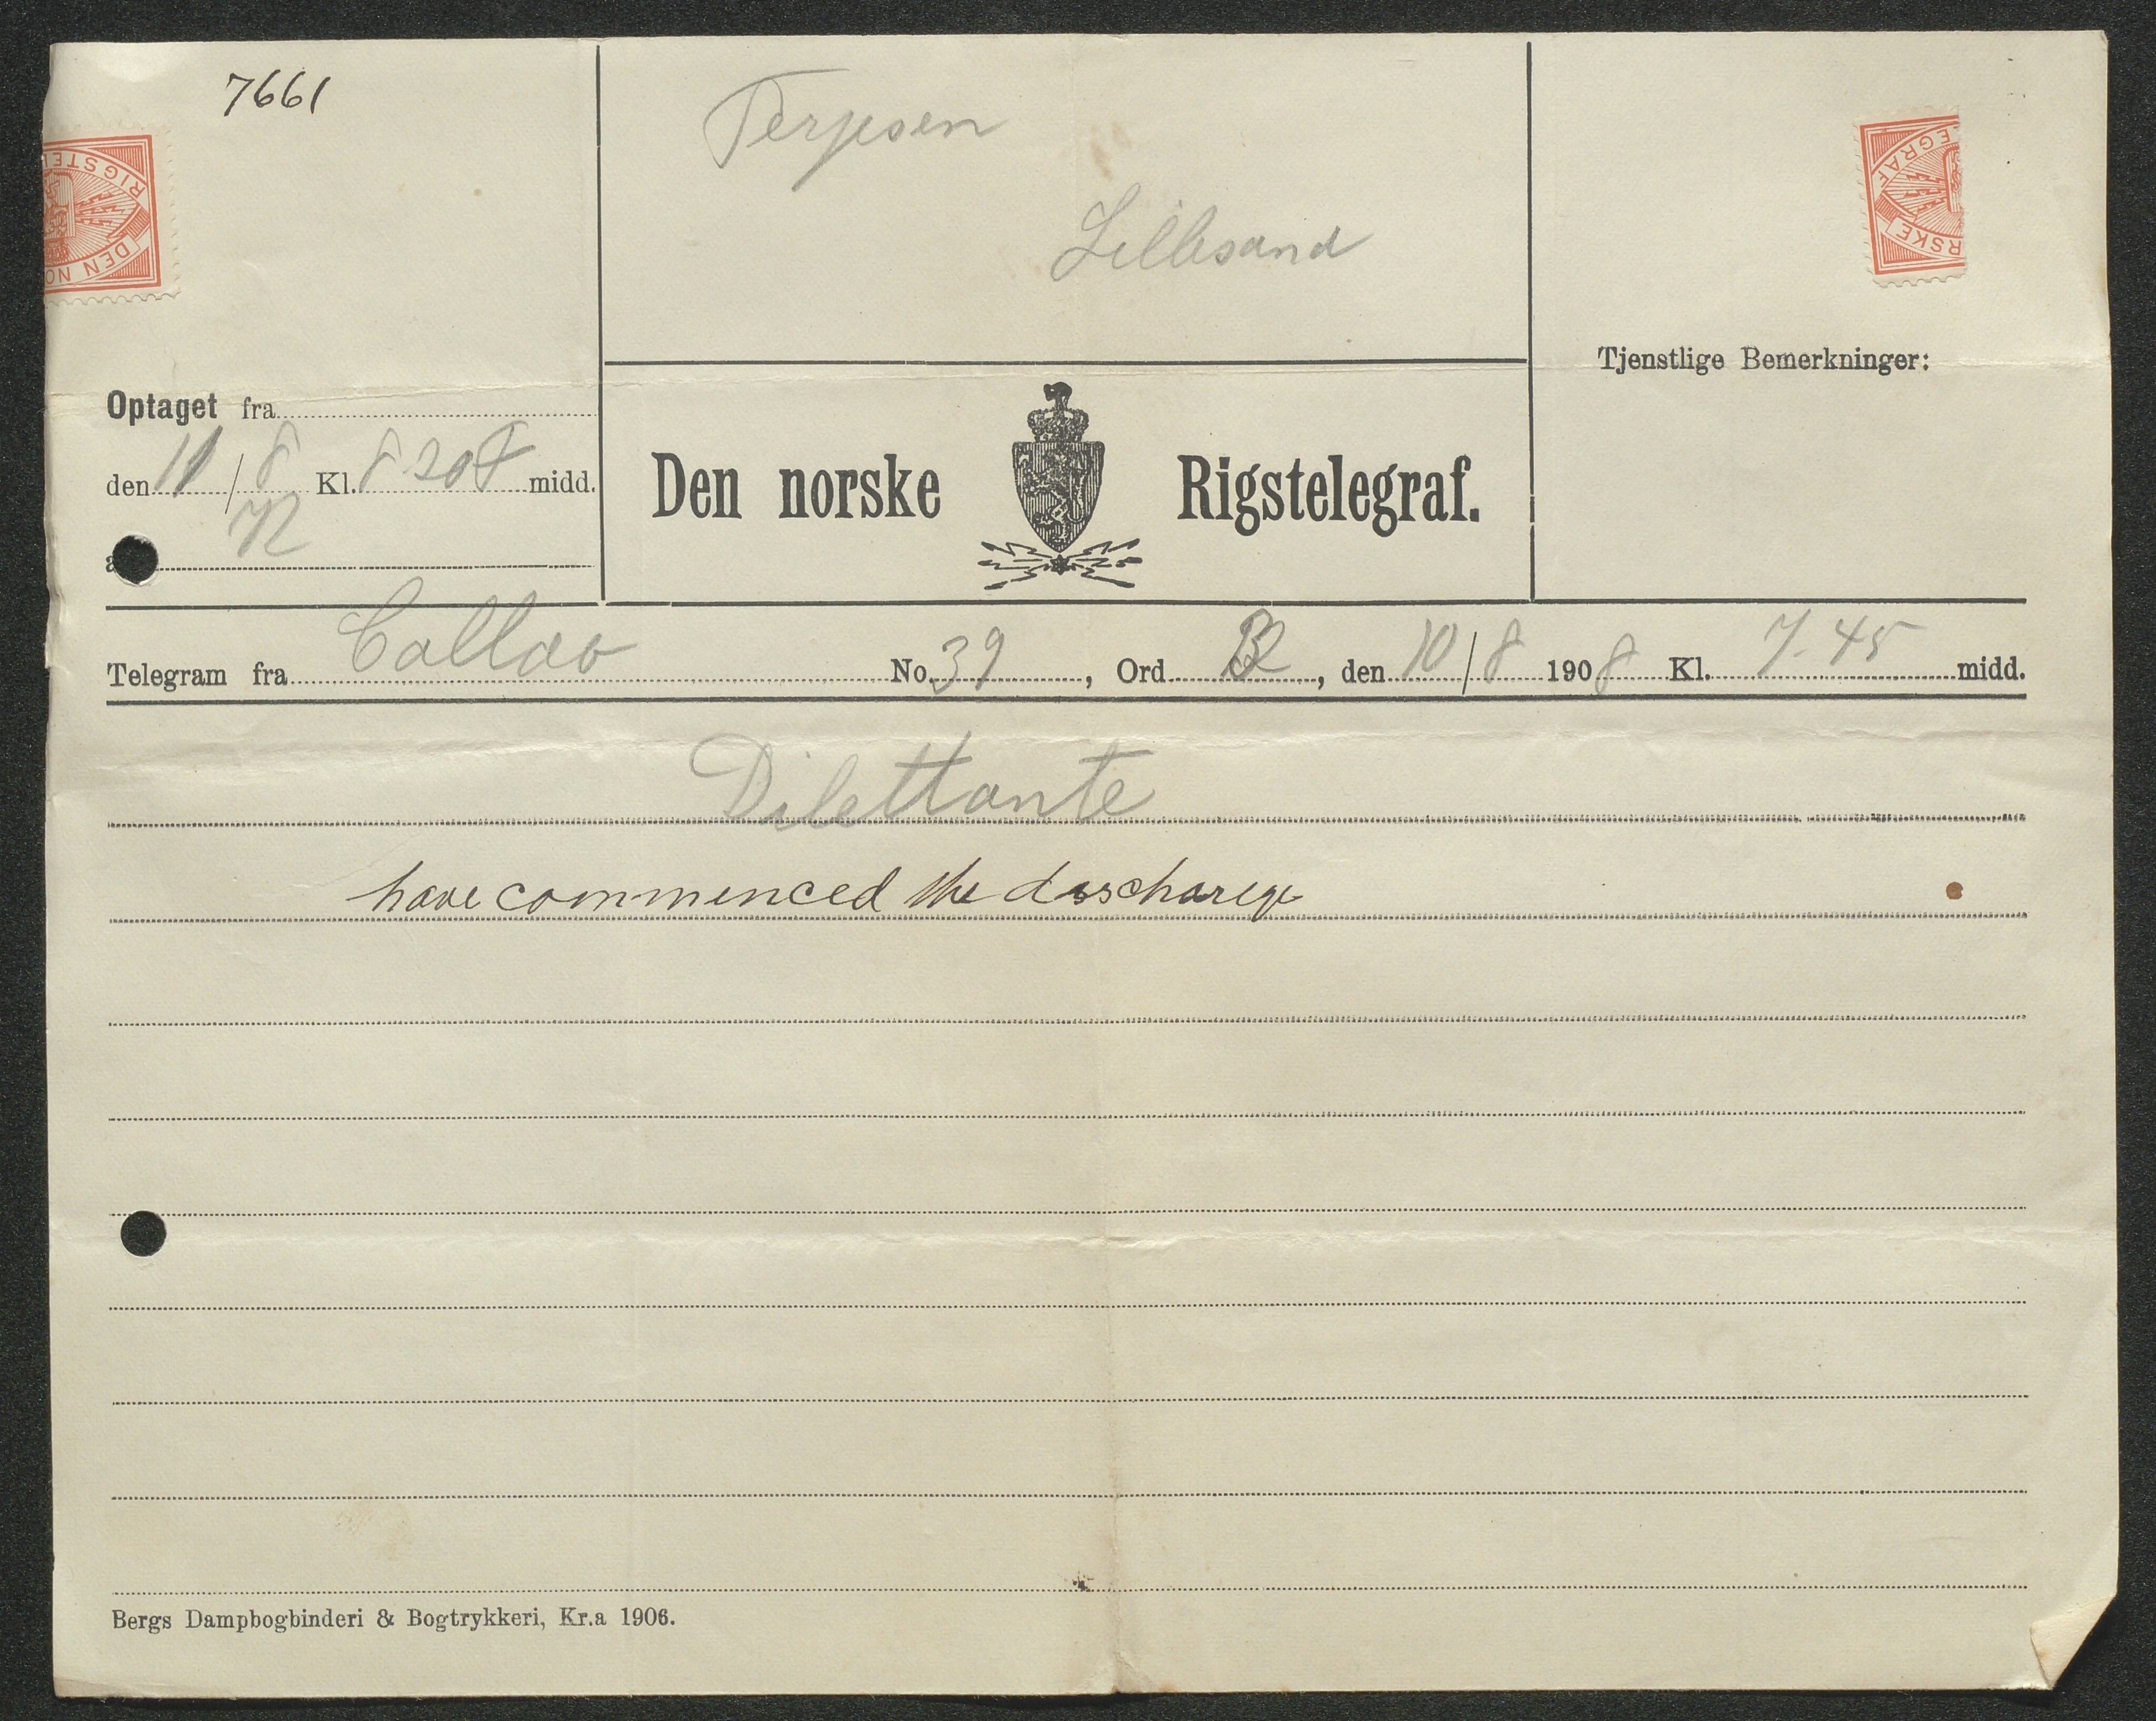 7661
RIGSTEL
DEN NO
Terjesen
Lillesand
EGRAF
RSKE
Tjenstlige Bemerkninger:
Optaget fra
den 11/8 Kl. 8 20 F midd.
Den norske Rigstelegraf.
Telegram fra Callao No. 39, Ord, den 10/8 1908 Kl. 7.45 midd.
Dilettante
have commenced the discharge
Bergs Dampbogbinderi & Bogtrykkeri, Kr.a 1906.